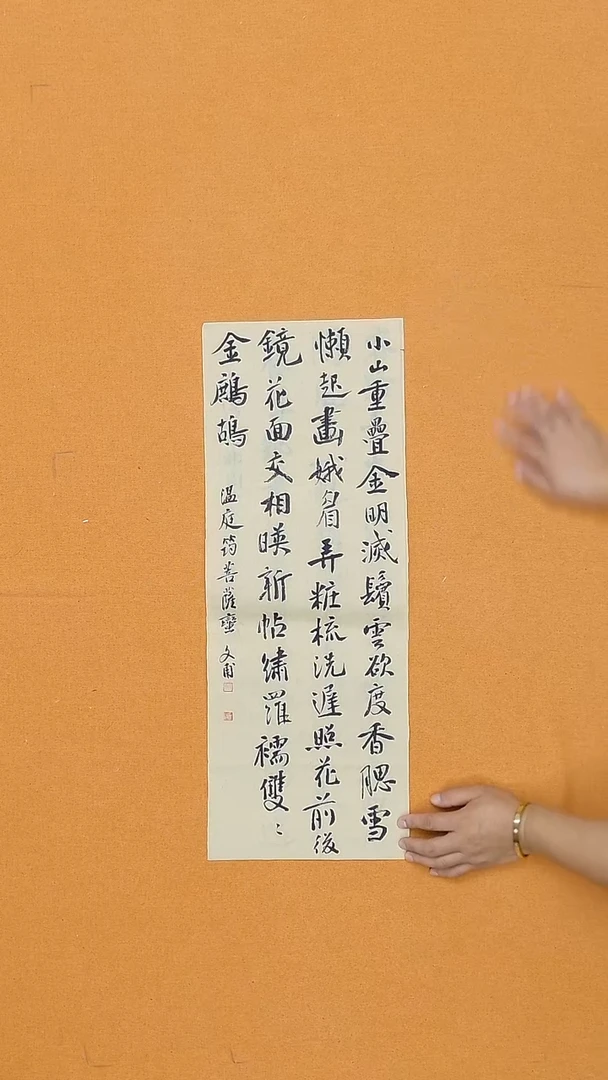 小山重疊金明滅鬢雲欲度香腮雪
懶起畫娥眉弄粧梳洗遲照花前後
鏡花面交相暎新帖繡羅襦雙〻
金鷓鴣
温庭筠菩薩蠻 文甫